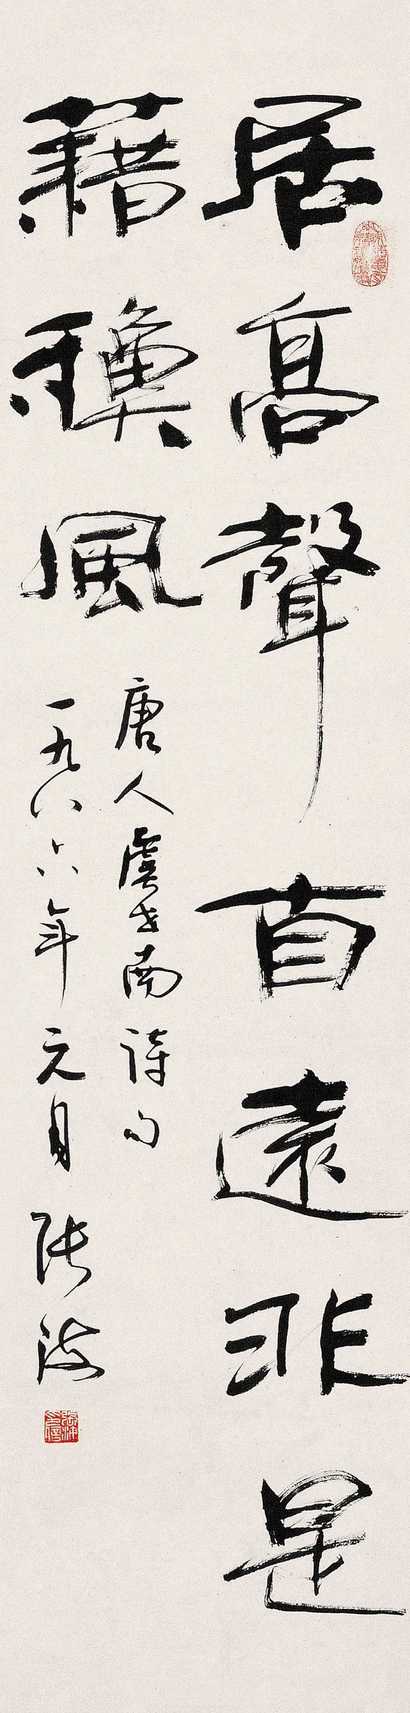 居高聲自遠非是
藉穐風
唐人虞世南詩句
一九八六年元月張海